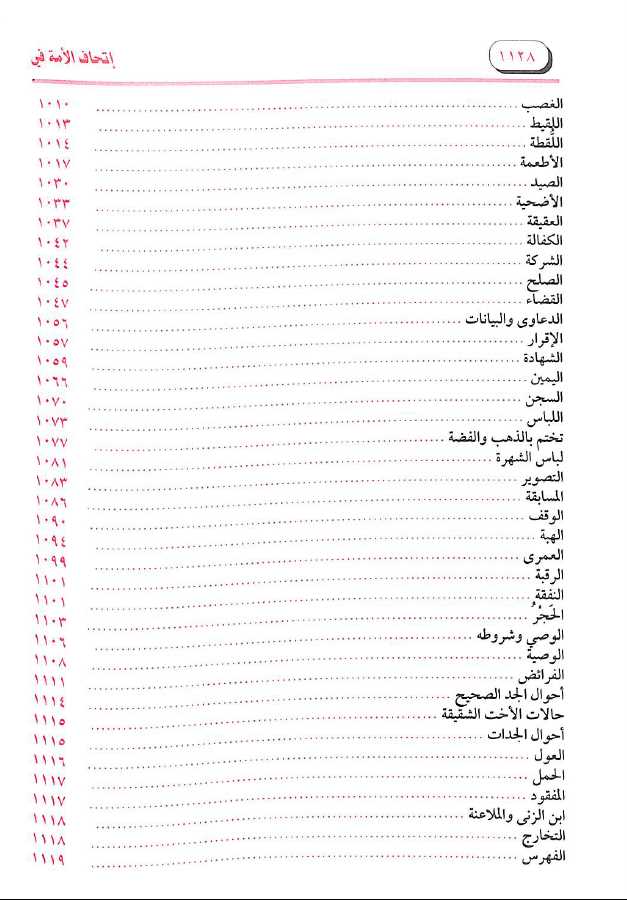 ١١٢٨ إتحاف الأمة في
الغصب ١٠١٠
اللقيط ١٠١٣
اللُّقطة ١٠١٤
الأطعمة ١٠١٧
الصيد ١٠٣٠
الأضحية ١٠٣٣
العقيقة ١٠٣٧
الكفالة ١٠٤٢
الشركة ١٠٤٤
الصلح ١٠٤٥
القضاء ١٠٤٧
الدعاوى والبيانات ١٠٥٦
الإقرار ١٠٥٧
الشهادة ١٠٥٩
اليمين ١٠٦٦
السجن ١٠٧٠
اللباس ١٠٧٣
تختم بالذهب والفضة ١٠٧٧
لباس الشهرة ١٠٨١
التصوير ١٠٨٣
المسابقة ١٠٨٦
الوقف ١٠٩٠
الهبة ١٠٩٤
العمرى ١٠٩٩
الرقبة ١١٠١
النفقة ١١٠١
الحَجْرُ ١١٠٣
الوصي وشروطه ١١٠٦
الوصية ١١٠٨
الفرائض ١١١١
أحوال الجد الصحيح ١١١٤
حالات الأخت الشقيقة ١١١٥
أحوال الجدات ١١١٥
العول ١١١٦
الحمل ١١١٧
المفقود ١١١٧
ابن الزنى والملاعنة ١١١٨
التخارج ١١١٨
الفهرس ١١١٩